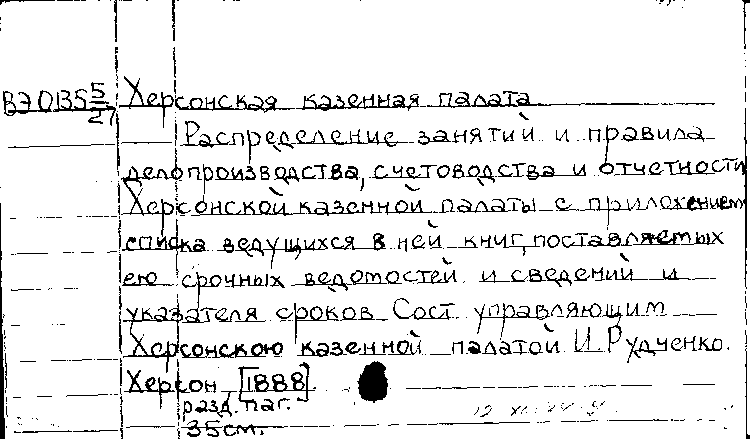 ВЭ 0135 5/27 Херсонская казенная палата
Распределение занятий и правила
делопроизводства, счетоводства и отчетности
Херсонской казенной палаты с приложением
списка ведущихся в ней книг, поставляемых
ею срочных ведомостей и сведений и
указателя сроков Сост. управляющим
Херсонскою казенной палатой И. Рудченко.
Херсон, [1888].
разд. паг.
35см.